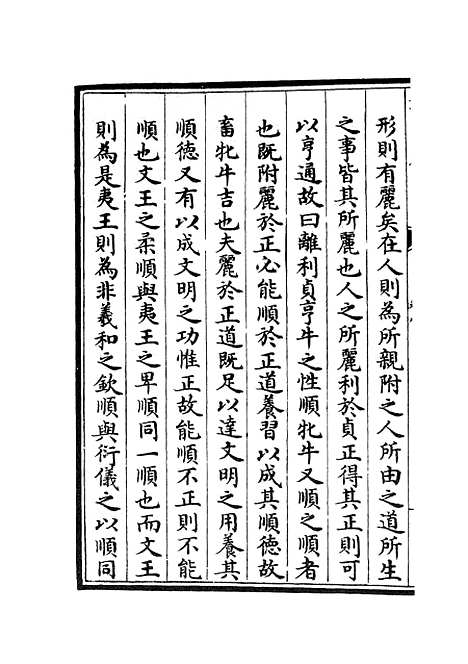 形則有麗矣在人則為所親附之人所由之道所生
之事皆其所麗也人之所麗利於貞正得其正則可
以亨通故曰離利貞亨牛之性順牝牛又順之順者
也既附麗於正必能順於正道養習以成其順德故
畜牝牛吉也夫麗於正道既足以達文明之用養其
順德又有以成文明之功惟正故能順不正則不能
順也文王之柔順與夷王之卑順同一順也而文王
則為是夷王則為非羲和之欽順與衍儀之以順同